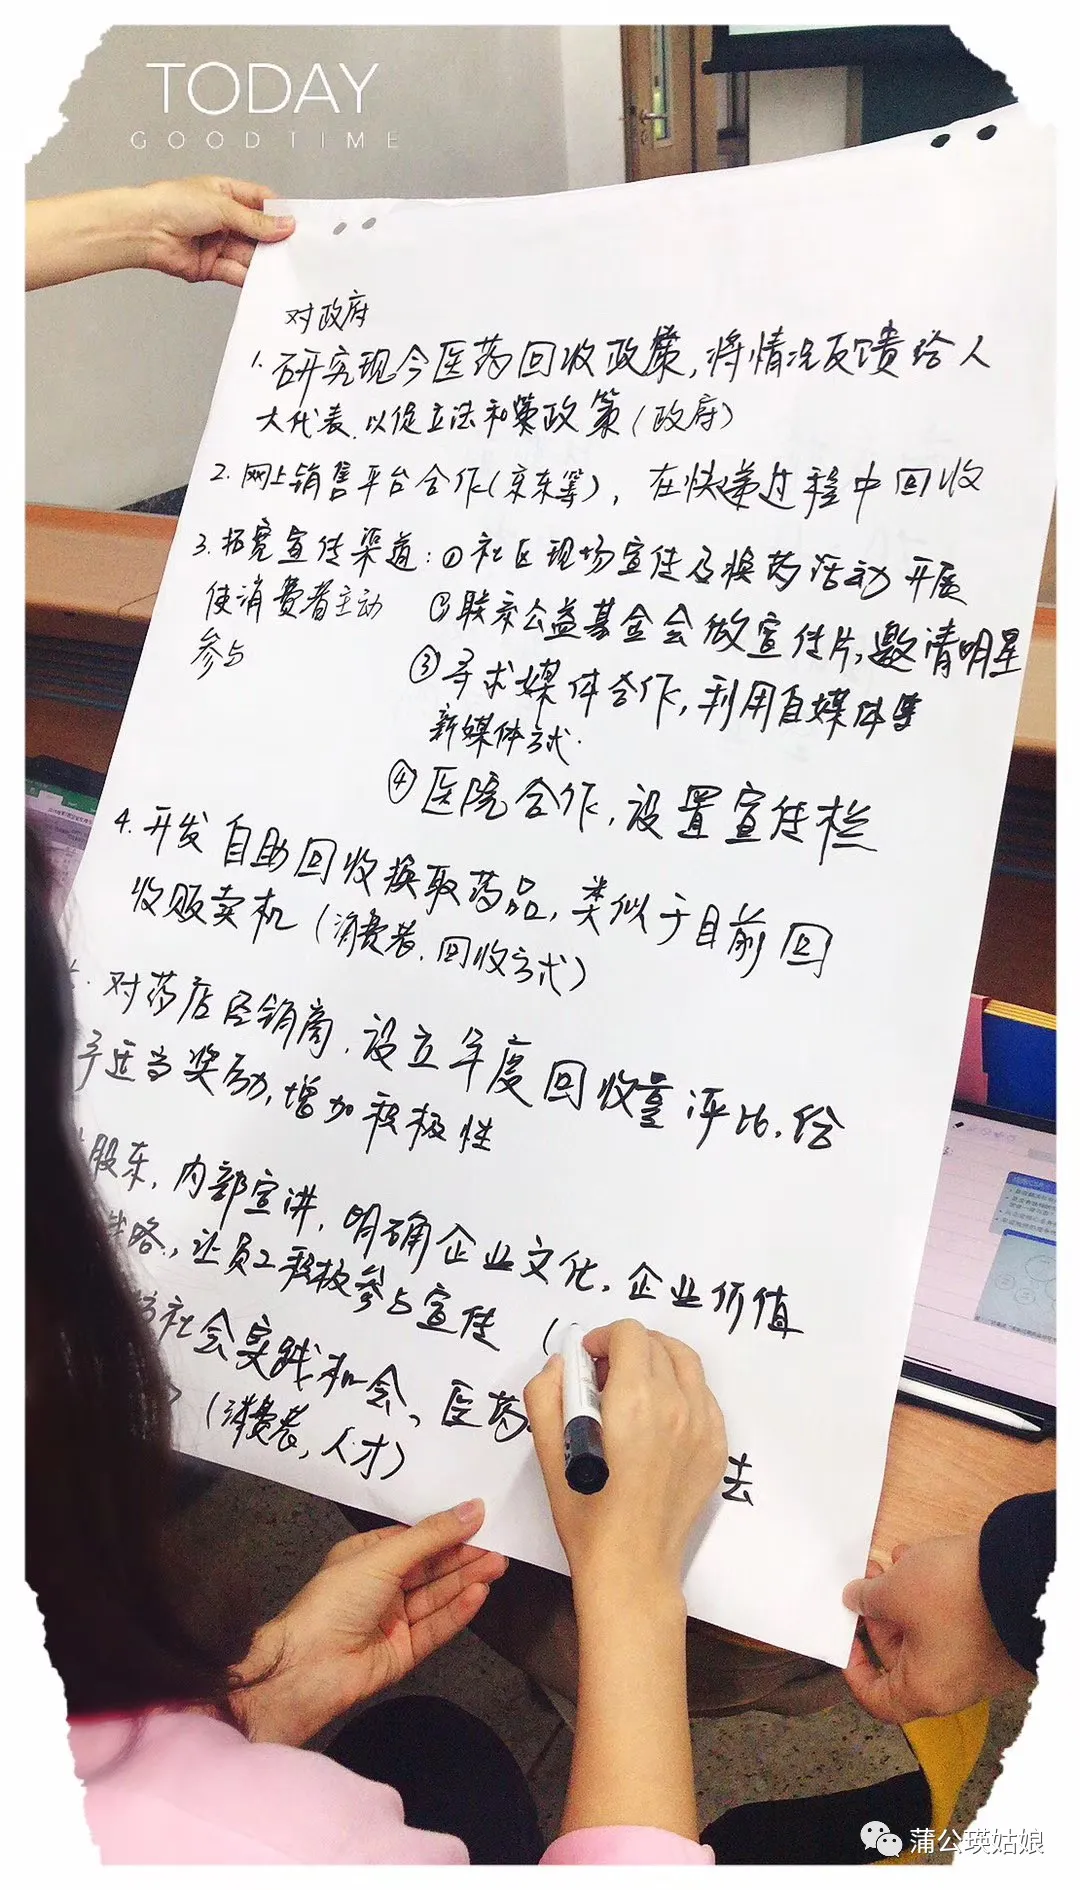 TODAY
GOODTIME
对政府
1. 研究现今医药回收政策,将情况反馈给人
大代表,以促立法和政策(政府)
2. 网上销售平台合作(京东等),在快递过程中回收
3. 拓宽宣传渠道:①社区现场宣传及换药活动开展
使消费者主动
参与
②联系公益基金会做宣传片,邀请明星
③寻求媒体合作,利用自媒体等
新媒体方式.
④医院合作,设置宣传栏
4. 开发自助回收换取药品,类似于目前回
收贩卖机(消费者,回收方式)
对药店经销商,设立年度回收量评比,给
予适当奖励,增加积极性
股东,内部宣讲,明确企业文化,企业价值
战略,让员工积极参与宣传(
社会实践机会,医药
去
(消费者,人才)
蒲公瑛姑娘